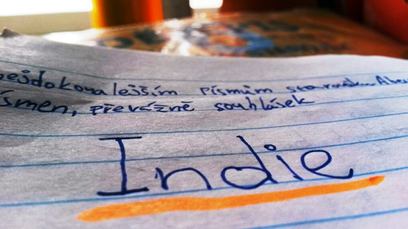 nejdokonalejším písmům starověku. Abe
ísmen, převážně souhlásek
Indie